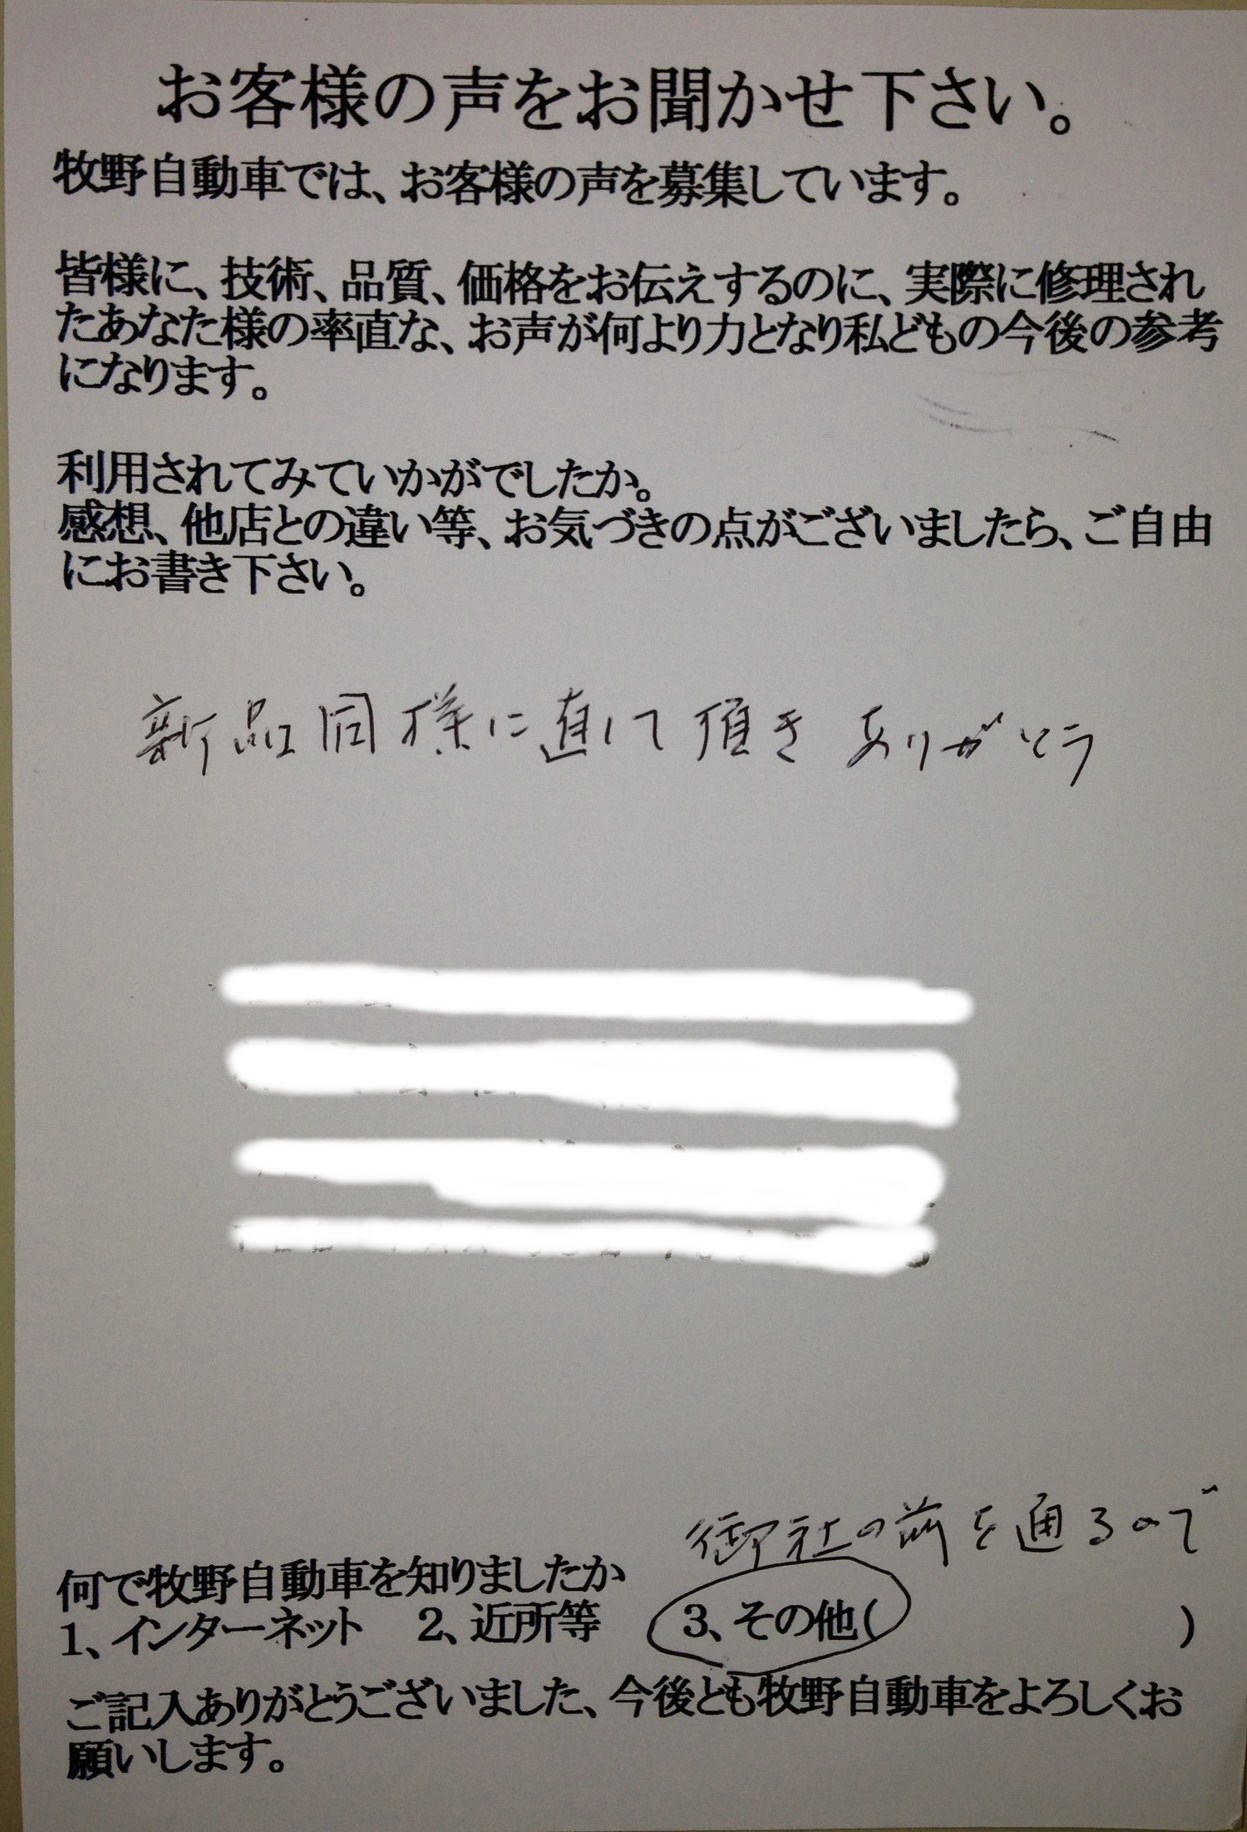 お客様の声をお聞かせ下さい。
牧野自動車では、お客様の声を募集しています。
皆様に、技術、品質、価格をお伝えするのに、実際に修理され
たあなた様の率直な、お声が何より力となり私どもの今後の参考
になります。
利用されてみていかがでしたか。
感想、他店との違い等、お気づきの点がございましたら、ご自由
にお書き下さい。
新品同様に直して頂きありがとう
御社の前を通るので
何で牧野自動車を知りましたか
1、インターネット　2、近所等　3、その他(　)
ご記入ありがとうございました、今後とも牧野自動車をよろしくお
願いします。